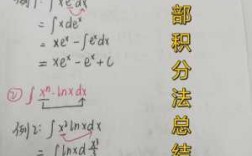 例1: ∫xeˣdx
= ∫xdeˣ
= xeˣ - ∫eˣdx
= xeˣ - eˣ + C
② ∫xⁿ·lnxdx
例2: ∫x²lnxdx
= ∫lnxd
部积分法总结